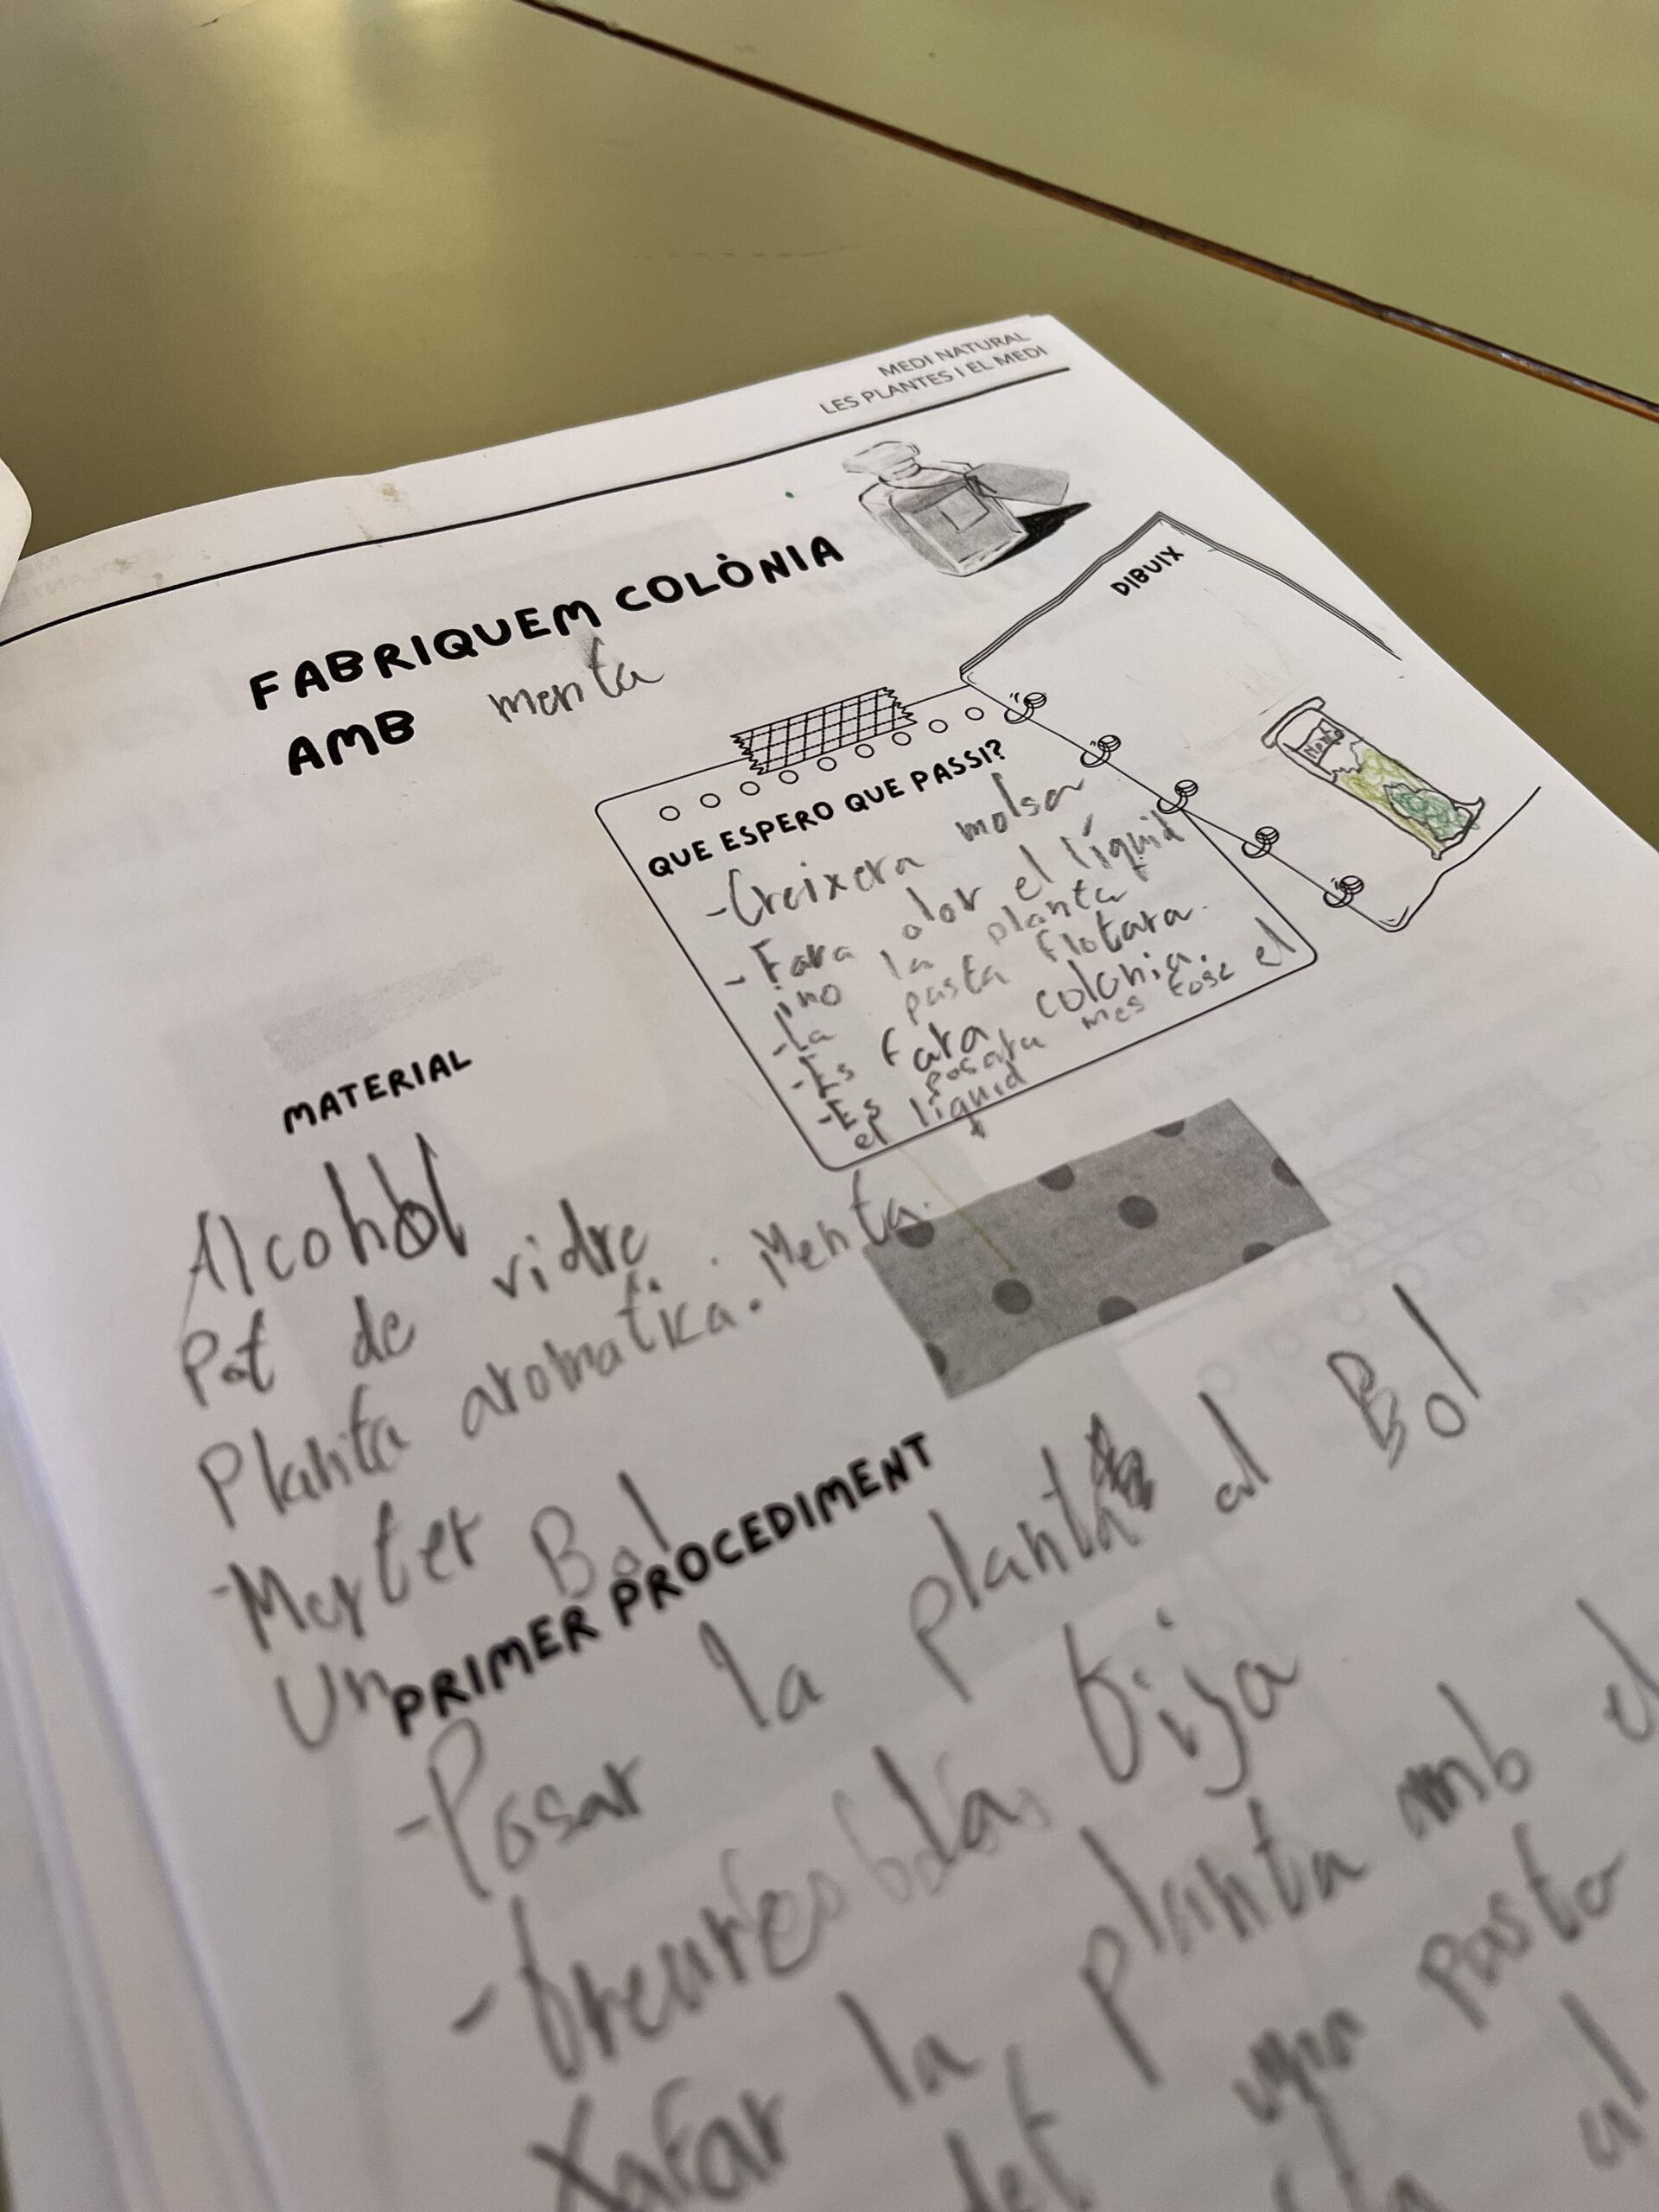 MEDI NATURAL
LES PLANTES I EL MEDI
FABRIQUEM COLÒNIA
AMB menta
DIBUIX
Menta
QUE ESPERO QUE PASSI?
-Creixera molsa
- Fara olor el líquid
i no la planta
-La pasta flotara.
-Es fara colonia.
-Es posara mes fosc el
el líquid
MATERIAL
Alcohol
Pot de vidre
Planta aromatica. Menta.
-Morter
Un Bol
PRIMER PROCEDIMENT
-Posar la planta al Bol
- treure la tija
Xafar la planta amb el
una pasta
al